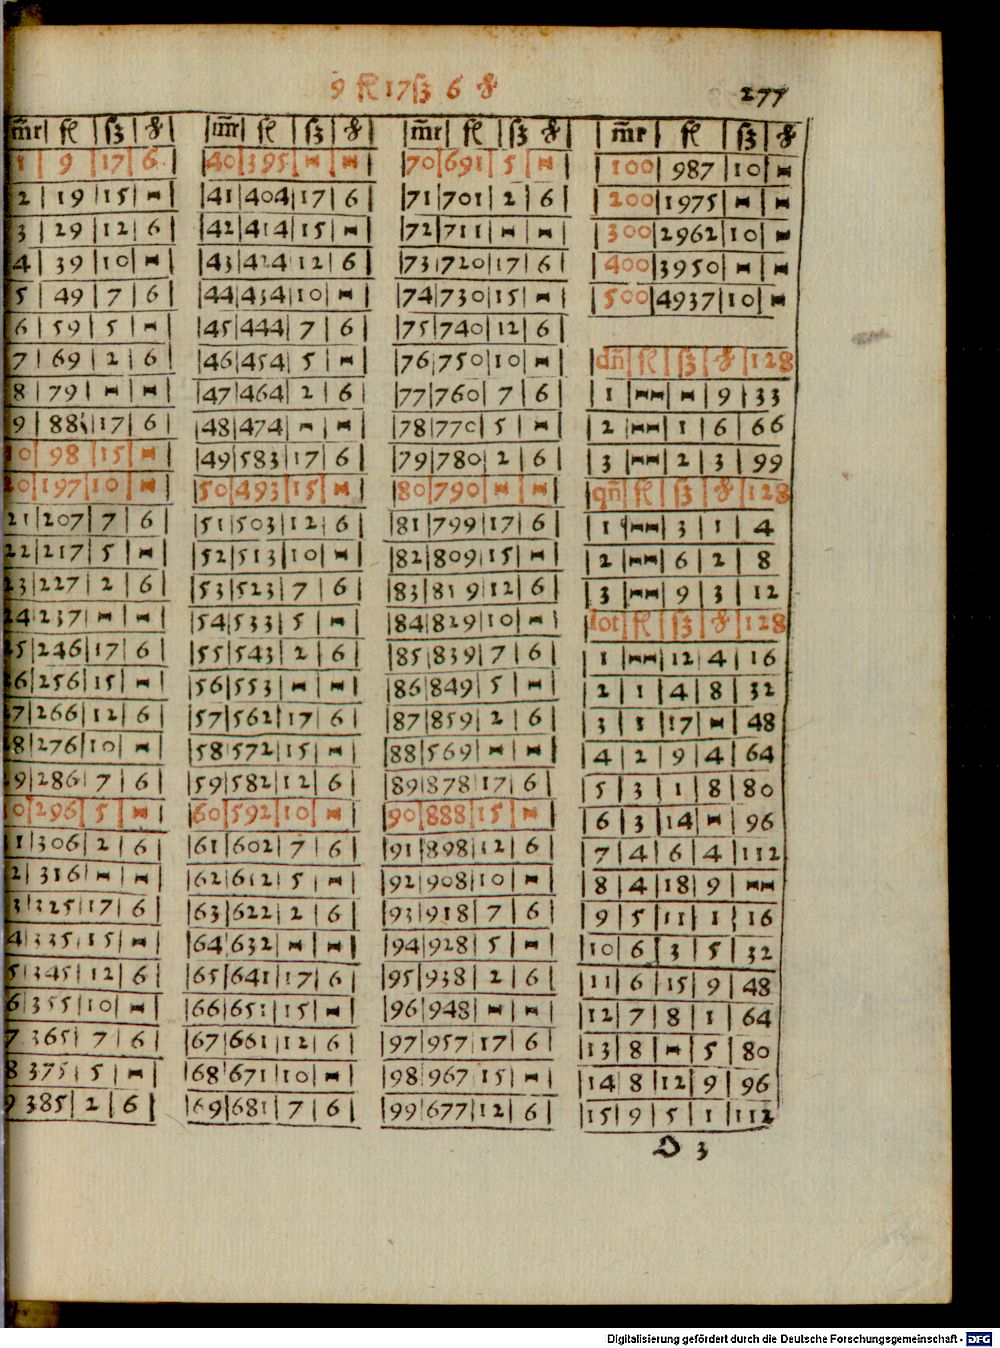 9 fl 17 ß 6 ₰
277
m̄r | fl | ß | ₰
1 | 9 | 17 | 6
2 | 19 | 15 | -
3 | 29 | 12 | 6
4 | 39 | 10 | -
5 | 49 | 7 | 6
6 | 59 | 5 | -
7 | 69 | 2 | 6
8 | 79 | - | -
9 | 88 | 17 | 6
10 | 98 | 15 | -
20 | 197 | 10 | -
21 | 207 | 7 | 6
22 | 217 | 5 | -
23 | 227 | 2 | 6
24 | 237 | - | -
25 | 246 | 17 | 6
26 | 256 | 15 | -
27 | 266 | 12 | 6
28 | 276 | 10 | -
29 | 286 | 7 | 6
0 | 296 | 5 | -
1 | 306 | 2 | 6
2 | 316 | - | -
3 | 325 | 17 | 6
4 | 335 | 15 | -
5 | 345 | 12 | 6
6 | 355 | 10 | -
7 | 365 | 7 | 6
8 | 375 | 5 | -
9 | 385 | 2 | 6
m̄r | fl | ß | ₰
40 | 395 | - | -
41 | 404 | 17 | 6
42 | 414 | 15 | -
43 | 424 | 12 | 6
44 | 434 | 10 | -
45 | 444 | 7 | 6
46 | 454 | 5 | -
47 | 464 | 2 | 6
48 | 474 | - | -
49 | 583 | 17 | 6
50 | 493 | 15 | -
51 | 503 | 12 | 6
52 | 513 | 10 | -
53 | 523 | 7 | 6
54 | 533 | 5 | -
55 | 543 | 2 | 6
56 | 553 | - | -
57 | 562 | 17 | 6
58 | 572 | 15 | -
59 | 582 | 12 | 6
60 | 592 | 10 | -
61 | 602 | 7 | 6
62 | 612 | 5 | -
63 | 622 | 2 | 6
64 | 632 | - | -
65 | 641 | 17 | 6
66 | 651 | 15 | -
67 | 661 | 12 | 6
68 | 671 | 10 | -
69 | 681 | 7 | 6
m̄r | fl | ß | ₰
70 | 691 | 5 | -
71 | 701 | 2 | 6
72 | 711 | - | -
73 | 720 | 17 | 6
74 | 730 | 15 | -
75 | 740 | 12 | 6
76 | 750 | 10 | -
77 | 760 | 7 | 6
78 | 770 | 5 | -
79 | 780 | 2 | 6
80 | 790 | - | -
81 | 799 | 17 | 6
82 | 809 | 15 | -
83 | 819 | 12 | 6
84 | 829 | 10 | -
85 | 839 | 7 | 6
86 | 849 | 5 | -
87 | 859 | 2 | 6
88 | 569 | - | -
89 | 878 | 17 | 6
90 | 888 | 15 | -
91 | 898 | 12 | 6
92 | 908 | 10 | -
93 | 918 | 7 | 6
94 | 928 | 5 | -
95 | 938 | 2 | 6
96 | 948 | - | -
97 | 957 | 17 | 6
98 | 967 | 15 | -
99 | 677 | 12 | 6
m̄r | fl | ß | ₰
100 | 987 | 10 | -
200 | 1975 | - | -
300 | 2962 | 10 | -
400 | 3950 | - | -
500 | 4937 | 10 | -
dn̄ | fl | ß | ₰ | 128
1 | -- | - | 9 | 33
2 | -- | 1 | 6 | 66
3 | -- | 2 | 3 | 99
qn̄ | fl | ß | ₰ | 128
1 | -- | 3 | 1 | 4
2 | -- | 6 | 2 | 8
3 | -- | 9 | 3 | 12
lot | fl | ß | ₰ | 128
1 | -- | 12 | 4 | 16
2 | 1 | 4 | 8 | 32
3 | 1 | 17 | - | 48
4 | 2 | 9 | 4 | 64
5 | 3 | 1 | 8 | 80
6 | 3 | 14 | - | 96
7 | 4 | 6 | 4 | 112
8 | 4 | 18 | 9 | --
9 | 5 | 11 | 1 | 16
10 | 6 | 3 | 5 | 32
11 | 6 | 15 | 9 | 48
12 | 7 | 8 | 1 | 64
13 | 8 | - | 5 | 80
14 | 8 | 12 | 9 | 96
15 | 9 | 5 | 1 | 112
D 3
Digitalisierung gefördert durch die Deutsche Forschungsgemeinschaft - DFG